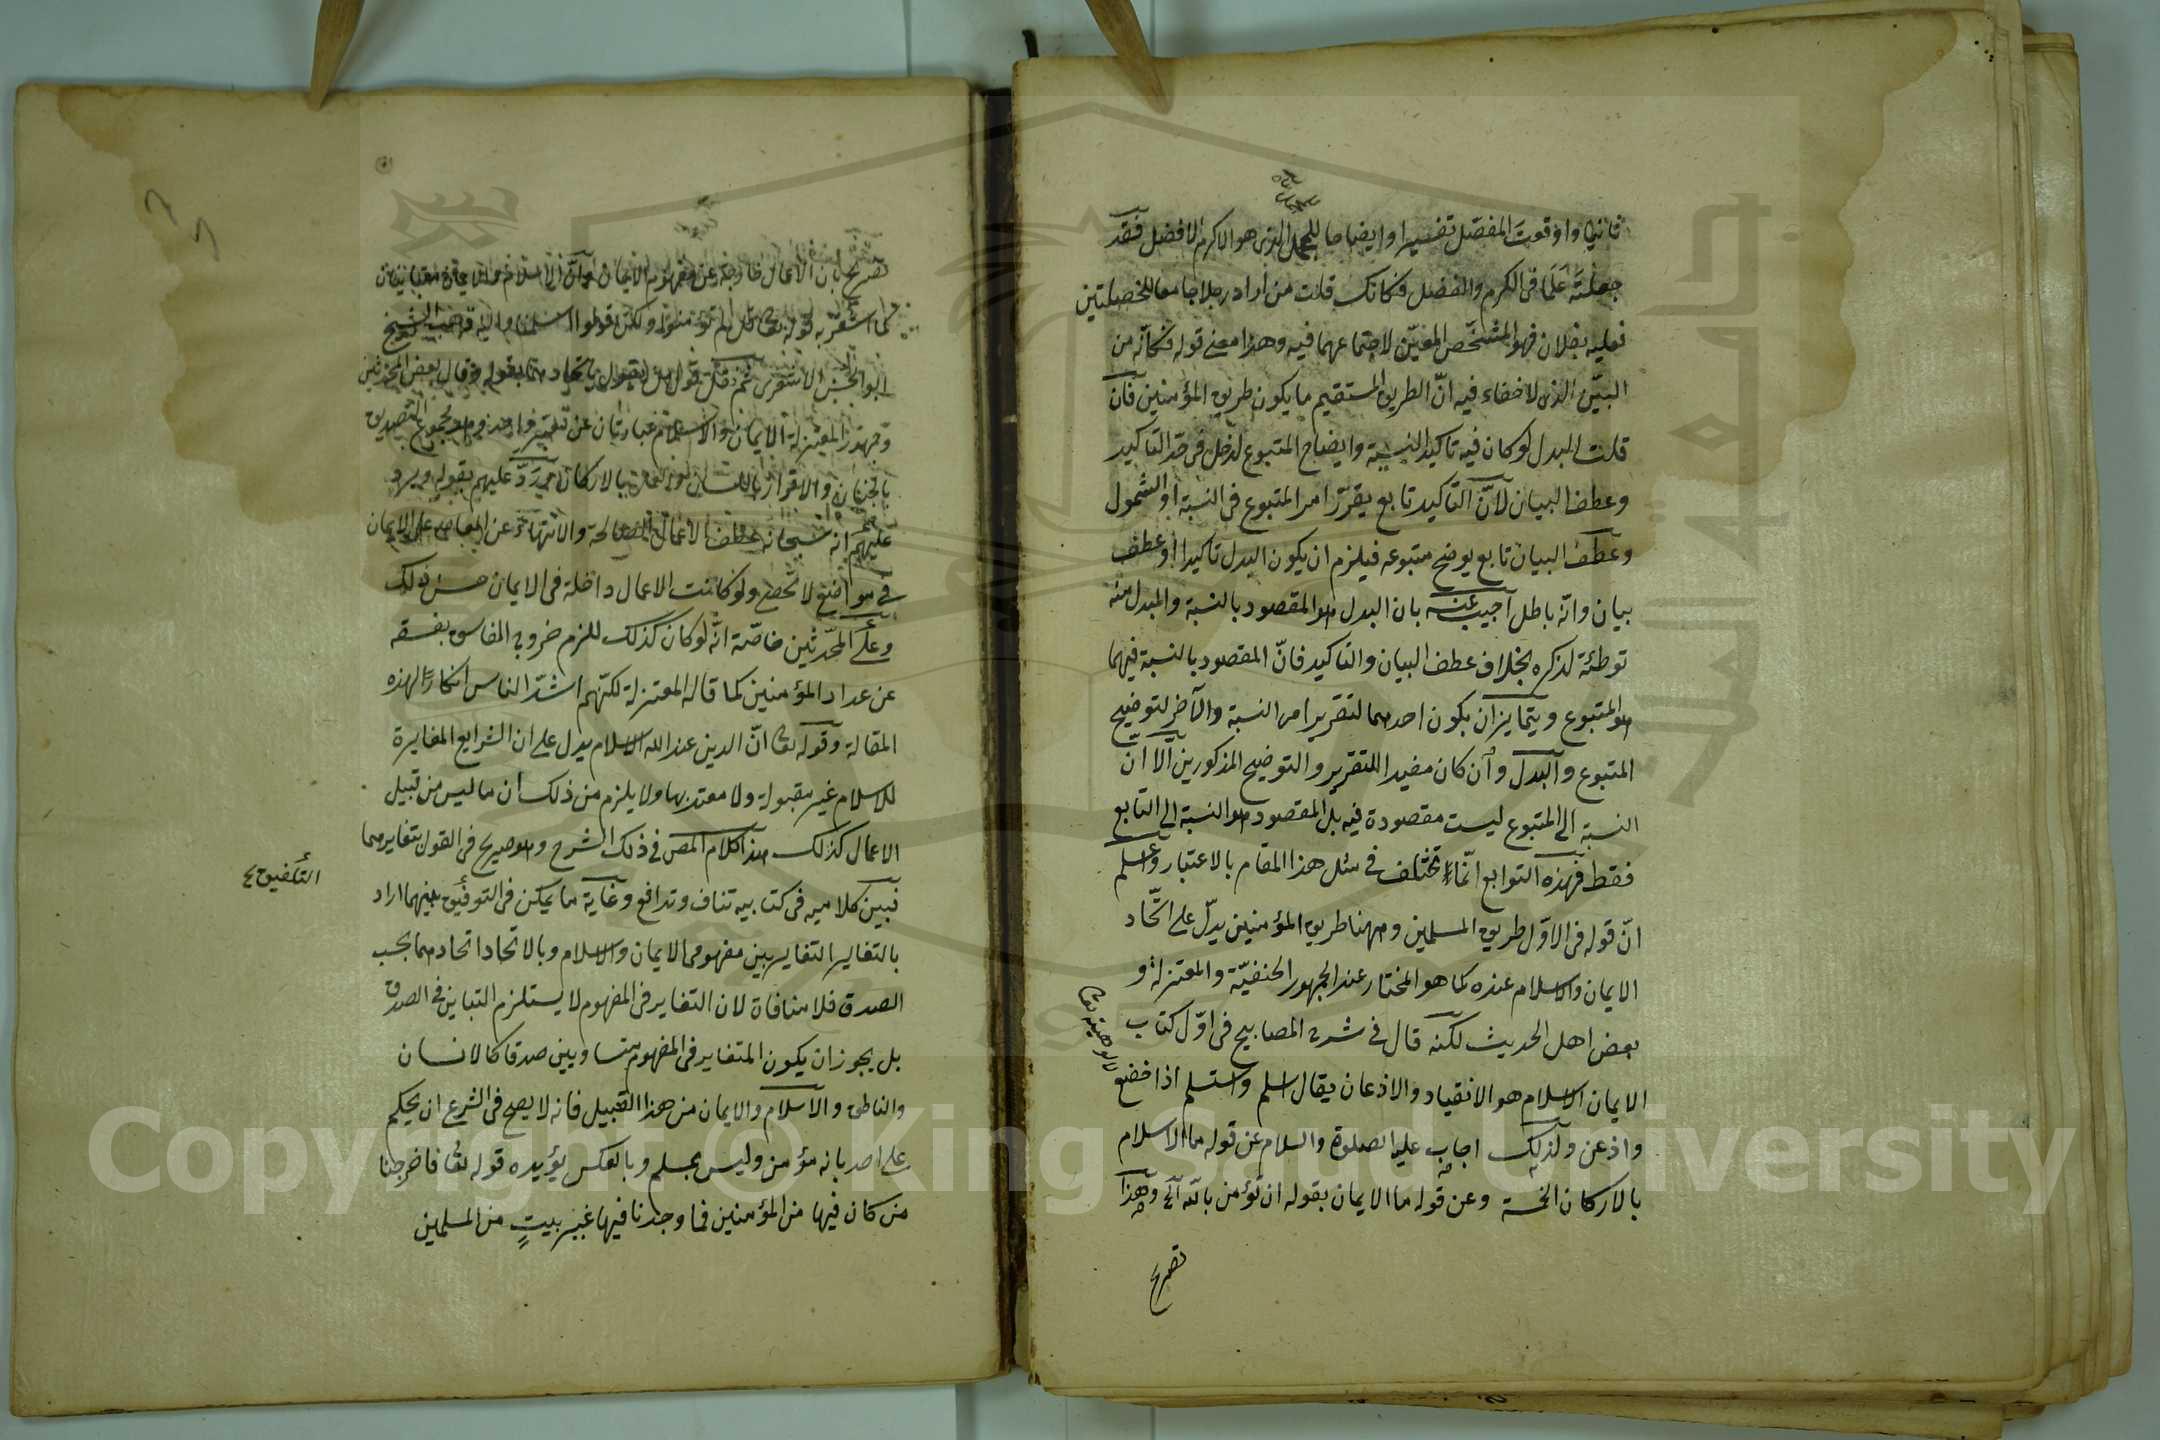 ثانيا واوقعت المفصل تفسيرا وايضاحا للمجمل الذى هو الاكرم الافضل فقد
جعلته علما فى الكرم والفضل فكانك قلت من اراد رجلا جامعا للخصلتين
فعليه بفلان فهو المشخص المعين لاجتماعهما فيه وهذا معنى قوله فكانه من
البيّن الذى لاخفاء فيه انّ الطريق المستقيم ما يكون طريق المؤمنين فان
قلت البدل لو كان فيه تاكيد النسبة وايضاح المتبوع لدخل فى حد التاكيد
وعطف البيان لانّ التاكيد تابع يقرّر امر المتبوع فى النسبة او الشمول
وعطف البيان تابع يوضح متبوعه فيلزم ان يكون البدل تاكيدا او عطف
بيان وانه باطل اجيب عنه بان البدل هو المقصود بالنسبة والمبدل منه
توطئة لذكره بخلاف عطف البيان والتاكيد فانّ المقصود بالنسبة فيهما
هو المتبوع ويتمايزان بكون احدهما لتقرير امر النسبة والآخر لتوضيح
المتبوع والبدل وان كان مفيدا للتقرير والتوضيح المذكورين الا انّ
النسبة الى المتبوع ليست مقصودة فيه بل المقصود هو النسبة الى التابع
فقط فهذه التوابع انّما تختلف فى مثل هذا المقام بالاعتبار واعلم
انّ قوله فى الاوّل طريق المسلمين وههنا طريق المؤمنين يدلّ على اتّحاد
الايمان والاسلام عنده كما هو المختار عند الجمهور الحنفيّة والمعتزلة و
بعض اهل الحديث لكنه قال فى شرح المصابيح فى اوّل كتاب
الايمان الاسلام هو الانقياد والاذعان يقال اسلم واستسلم اذا خضع
واذعن ولذلك اجاب عليه الصلوة والسلام عن قوله ما الاسلام
بالاركان الخمسة وعن قوله ما الايمان بقوله ان تؤمن بالله الخ وهذا
تصريح
تصريح بان الاعمال خارجة عن مفهوم الايمان وانّ الاسلام والايمان متباينان
كما اشعر به قوله تعالى قل لم تؤمنوا ولكن قولوا اسلمنا واليه ذهب الشيخ
ابو الحسن الاشعرى ثم وقال بعض المحدثين
وجمهور المعتزلة الايمان والاسلام عبارتان عن معبر واحد وهو مجموع التصديق
بالجنان والاقرار باللسان والعمل بالاركان ثم ردّ عليهم بقوله ويرد
عليهم انه سبحانه عطف الاعمال الصالحة والانتهاء عن المعاصى على الايمان
فى مواضع لا تحصى ولو كانت الاعمال داخلة فى الايمان حسن ذلك
وعلى المحدّثين خاصّة انّه لو كان كذلك للزم خروج الفاسق بفسقه
عن عداد المؤمنين كما قاله المعتزلة لكنّهم اشدّ الناس انكارا لهذه
المقالة وقوله تعالى انّ الدين عند الله الاسلام يدل على ان الشرايع المغايرة
للاسلام غير مقبولة ولا معتد بها ولا يلزم من ذلك ان ما ليس من قبيل
الاعمال كذلك هذا كلام المص فى ذلك الشرح وهو صريح فى القول بتغايرهما
فبين كلاميه فى كتابيه تناف وتدافع وغاية ما يمكن فى التوفيق بينهما اراد
بالتغاير التغاير بين مفهومى الايمان والاسلام وبالاتحاد اتحادهما بحسب
الصدق فلا منافاة لان التغاير فى المفهوم لا يستلزم التباين فى الصدق
بل يجوز ان يكون المتغاير فى المفهوم متساويين صدقا كالانسان
والناطق والاسلام والايمان من هذا القبيل فانه لا يصح فى الشرع ان يحكم
على احد بانه مؤمن وليس بمسلم وبالعكس يؤيده قوله تعالى فاخرجنا
من كان فيها من المؤمنين فما وجدنا فيها غير بيت من المسلمين
Copyright © King Saud University